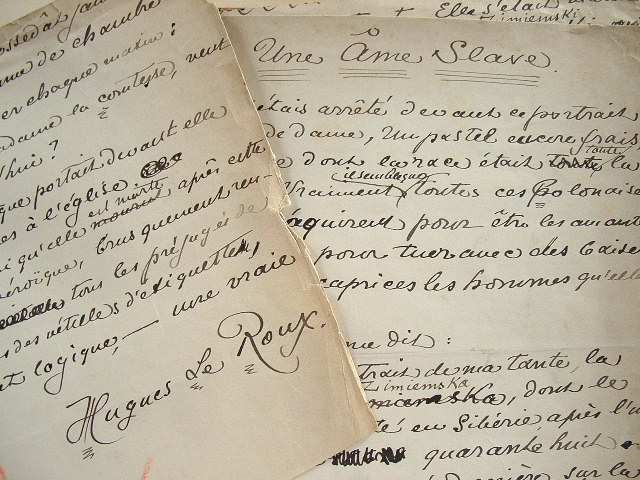 ossedât
me de chambre
er chaque matin :
adame la comtesse, veut
d'hui ?
que portait devant elle
es à l'église.
est morte
i qu'elle mourut après cette
éroïque, brusquement ren-
tous les préjugés de
s des vétilles d'étiquettes,
t logique, — une vraie
Hugues Le Roux.
Elle s'était
Zimiemski
Une Âme Slave.
étais arrêté devant ce portrait
de dame, Un pastel encore frais
toute
e dont la race était toute la
il semblaque
Vraiment toutes ces Polonaise
aquirent pour être les amant
pour tuer avec des baise
caprices les hommes qu'elle
me dit :
trait de ma tante, la
Zimiemska
miemska, dont le
té en Sibérie après l'in
quarante huit
sur la